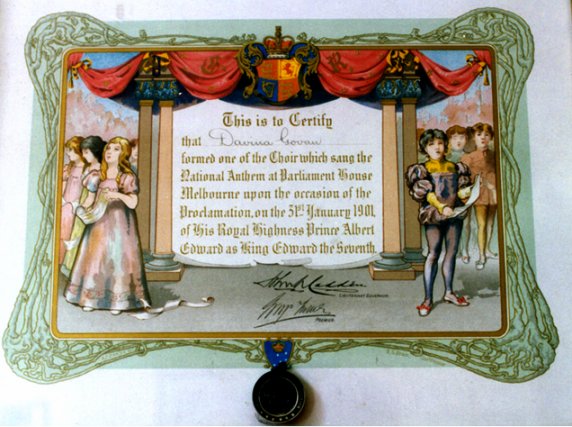 This is to Certify
that Davina Govan
formed one of the Choir which sang the
National Anthem at Parliament House
Melbourne upon the occasion of the
Proclamation, on the 31st January 1901,
of His Royal Highness Prince Albert
Edward as King Edward the Seventh.
John Madden
LIEUTENANT GOVERNOR.
PREMIER